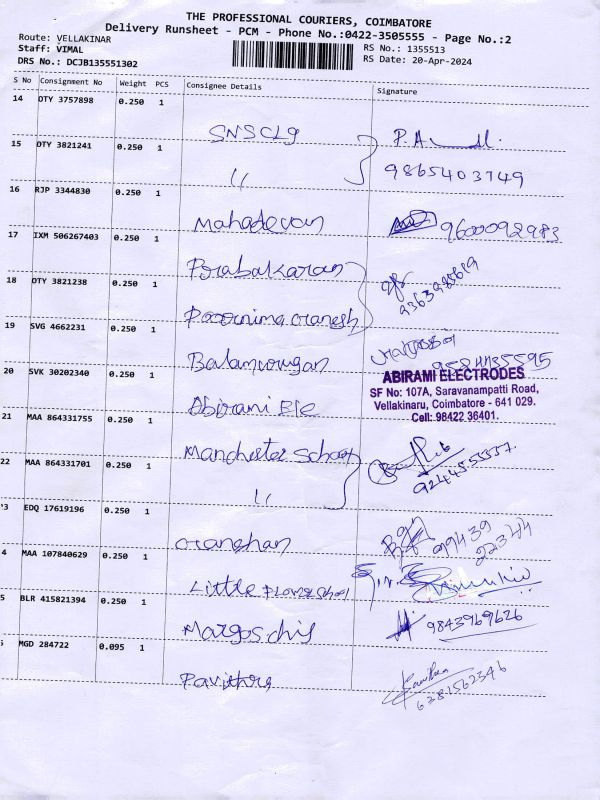 THE PROFESSIONAL COURIERS, COIMBATORE
Delivery Runsheet - PCM - Phone No.:0422-3505555 - Page No.:2
Route: VELLAKINAR
Staff: VIMAL
DRS No.: DCJB135551302
RS No.: 1355513
RS Date: 20-Apr-2024
S No Consignment No Weight PCS Consignee Details Signature
14 OTY 3757898 0.250 1
SNS Clg P.A
15 OTY 3821241 0.250 1
〃 9865403749
16 RJP 3344830 0.250 1
Mahadevan 9600092983
17 IXM 506267403 0.250 1
Prabakaran
18 OTY 3821238 0.250 1
Poornima Ganesh
19 SVG 4662231 0.250 1
Balamurugan
20 SVK 30202340 0.250 1
Abirami Ele
ABIRAMI ELECTRODES
SF No: 107A, Saravanampatti Road,
Vellakinaru, Coimbatore - 641 029.
Cell: 98422 36401.
21 MAA 864331755 0.250 1
Manchester School
22 MAA 864331701 0.250 1
〃 9244555557
23 EDQ 17619196 0.250 1
99439
22344
4 MAA 107840629 0.250 1
Little Flower School
5 BLR 415821394 0.250 1
Margoschis 9843969626
MGD 284722 0.095 1
Pavithra 6381562346